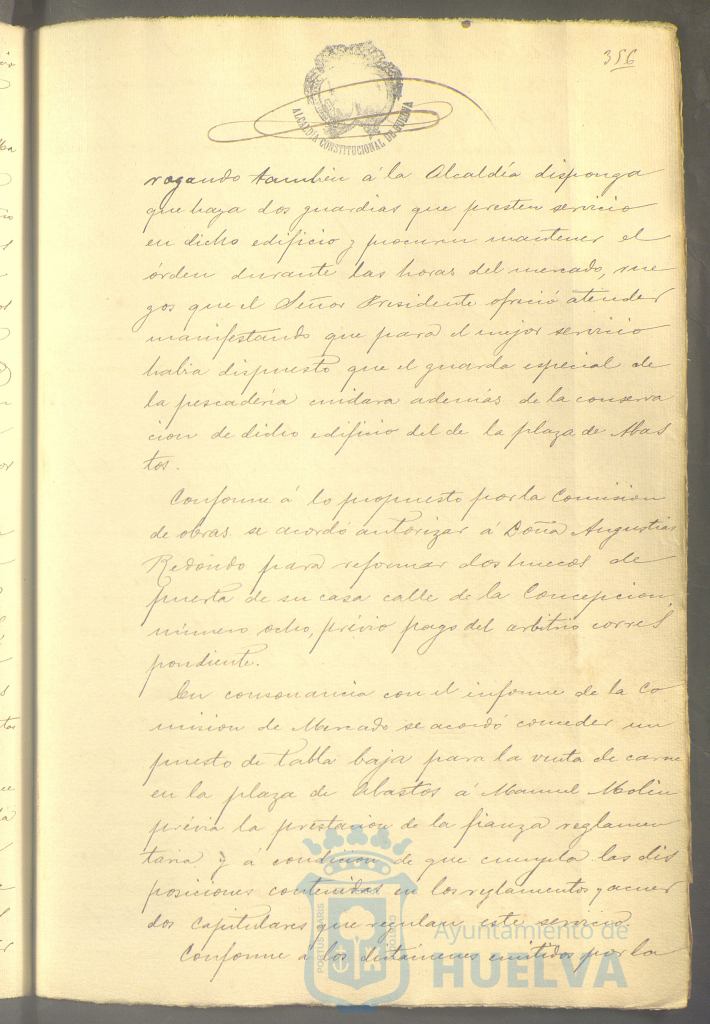 356
ALCALDÍA CONSTITUCIONAL DE HUELVA
rogando también á la Alcaldía disponga
que haya dos guardias que presten servicio
en dicho edificio y procuren mantener el
órden durante las horas del mercado, rue
gos que el Señor Presidente ofreció atender
manifestando que para el mejor servicio
habia dispuesto que el guarda especial de
la pescadería cuidara además de la conserva
cion de dicho edificio del de la plaza de Abas
tos.
Conforme á lo propuesto por la Comision
de obras se acordó autorizar á Doña Augustias
Redondo para reformar dos huecos de
puerta de su casa calle de la Concepcion,
número ocho, prévio pago del arbitrio corres
pondiente.
En consonancia con el informe de la Co
mision de Mercado se acordó conceder un
puesto de tabla baja para la venta de carne
en la plaza de Abastos á Manuel Molin
prévia la prestacion de la fianza reglamen
taria y á condicion de que cumpla las dis
posiciones contenidas en los reglamentos y acuer
dos capitulares que regulan este servicio.
Conforme á los dictámenes emitidos por la
PORTUS MARIS
CUSTODIA
Ayuntamiento de
HUELVA